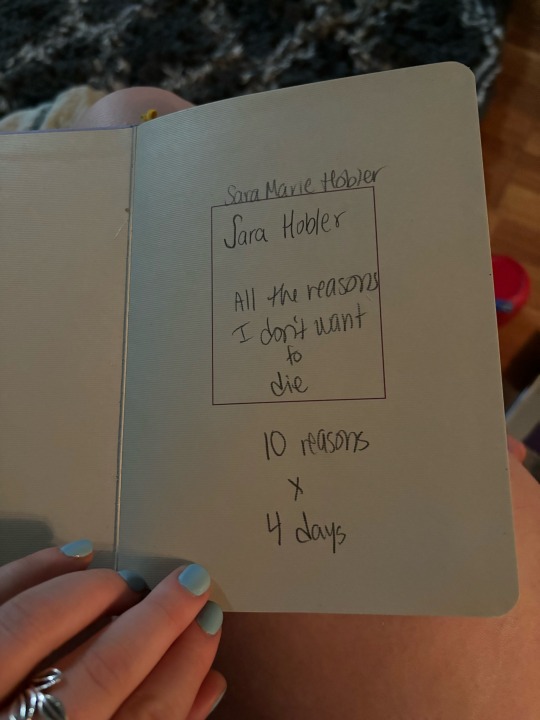 Sara Marie Hobler
Sara Hobler
All the reasons
I don't want
to
die
10 reasons
x
4 days